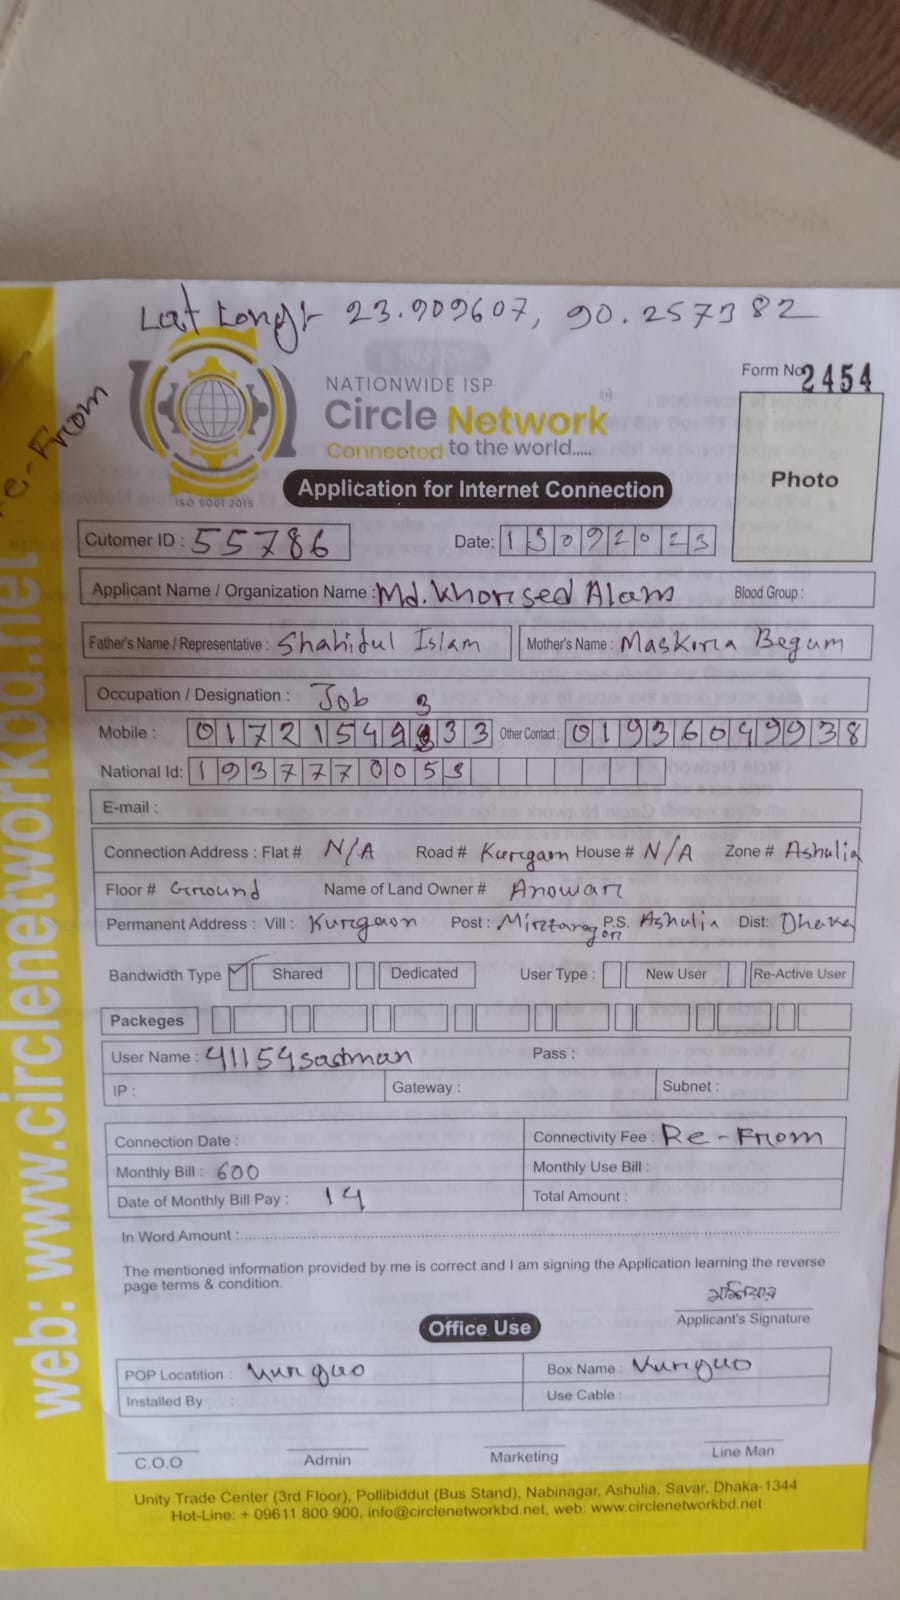 Lat Longt- 23.909607, 90.257382
Re-From
NATIONWIDE ISP
Circle Network
Connected to the world.....
ISO 9001:2015
Form No 2454
Photo
Application for Internet Connection
Cutomer ID : 55786 Date: 13092023
Applicant Name / Organization Name : Md. Khorised Alam Blood Group :
Father's Name / Representative : Shahidul Islam Mother's Name : Maskura Begum
Occupation / Designation : Job
3
Mobile : 01721549333 Other Contact : 01936049938
National Id: 1937770053
E-mail :
Connection Address : Flat # N/A Road # Kurgaon House # N/A Zone # Ashulia
Floor # Ground Name of Land Owner # Anowar
Permanent Address : Vill : Kurgaon Post : Mirzanagor P.S. Ashulia Dist: Dhaka
Bandwidth Type ✓ Shared Dedicated User Type : New User Re-Active User
Packeges
User Name : 41154sadman Pass :
IP : Gateway : Subnet :
Connection Date : Connectivity Fee : Re-From
Monthly Bill : 600 Monthly Use Bill :
Date of Monthly Bill Pay : 14 Total Amount :
In Word Amount :
The mentioned information provided by me is correct and I am signing the Application learning the reverse
page terms & condition.
Applicant's Signature
Office Use
POP Locatition : Kurgao Box Name : Kurgao
Installed By : Use Cable :
C.O.O Admin Marketing Line Man
Unity Trade Center (3rd Floor), Pollibiddut (Bus Stand), Nabinagar, Ashulia, Savar, Dhaka-1344
Hot-Line: + 09611 800 900, info@circlenetworkbd.net, web: www.circlenetworkbd.net
web: www.circlenetworkbd.net